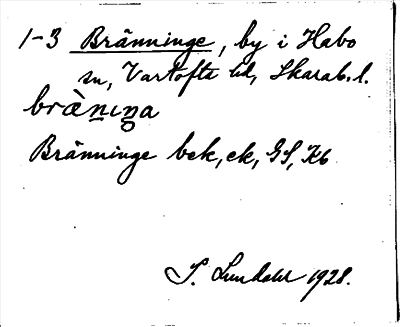 1-3 Bränninge, by i Habo
sn, Vartofta hd, Skarab. l.
brànıṉa
Bränninge bek, ek, GS, Kb
S. Lundahl 1928.